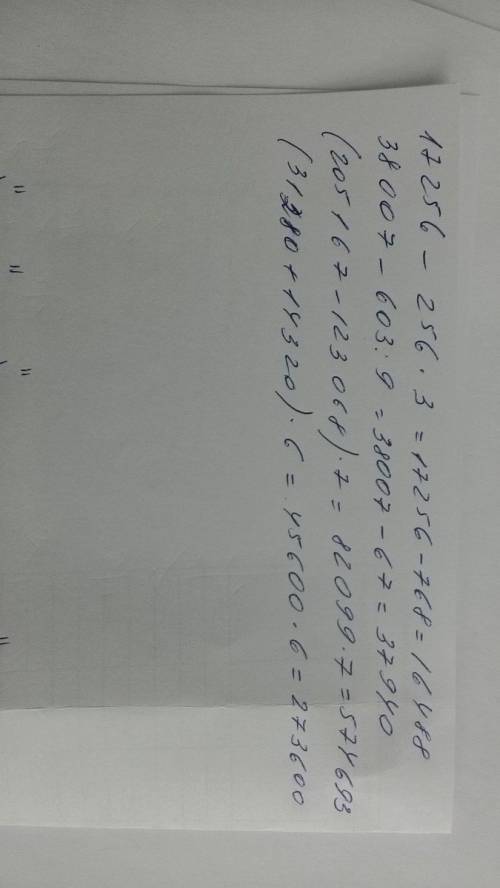 17256 - 256 · 3 = 17256 - 768 = 16488
38007 - 603 : 9 = 38007 - 67 = 37940
(205167 - 123068) · 7 = 82099 · 7 = 574693
(31280 + 14320) · 6 = 45600 · 6 = 273600